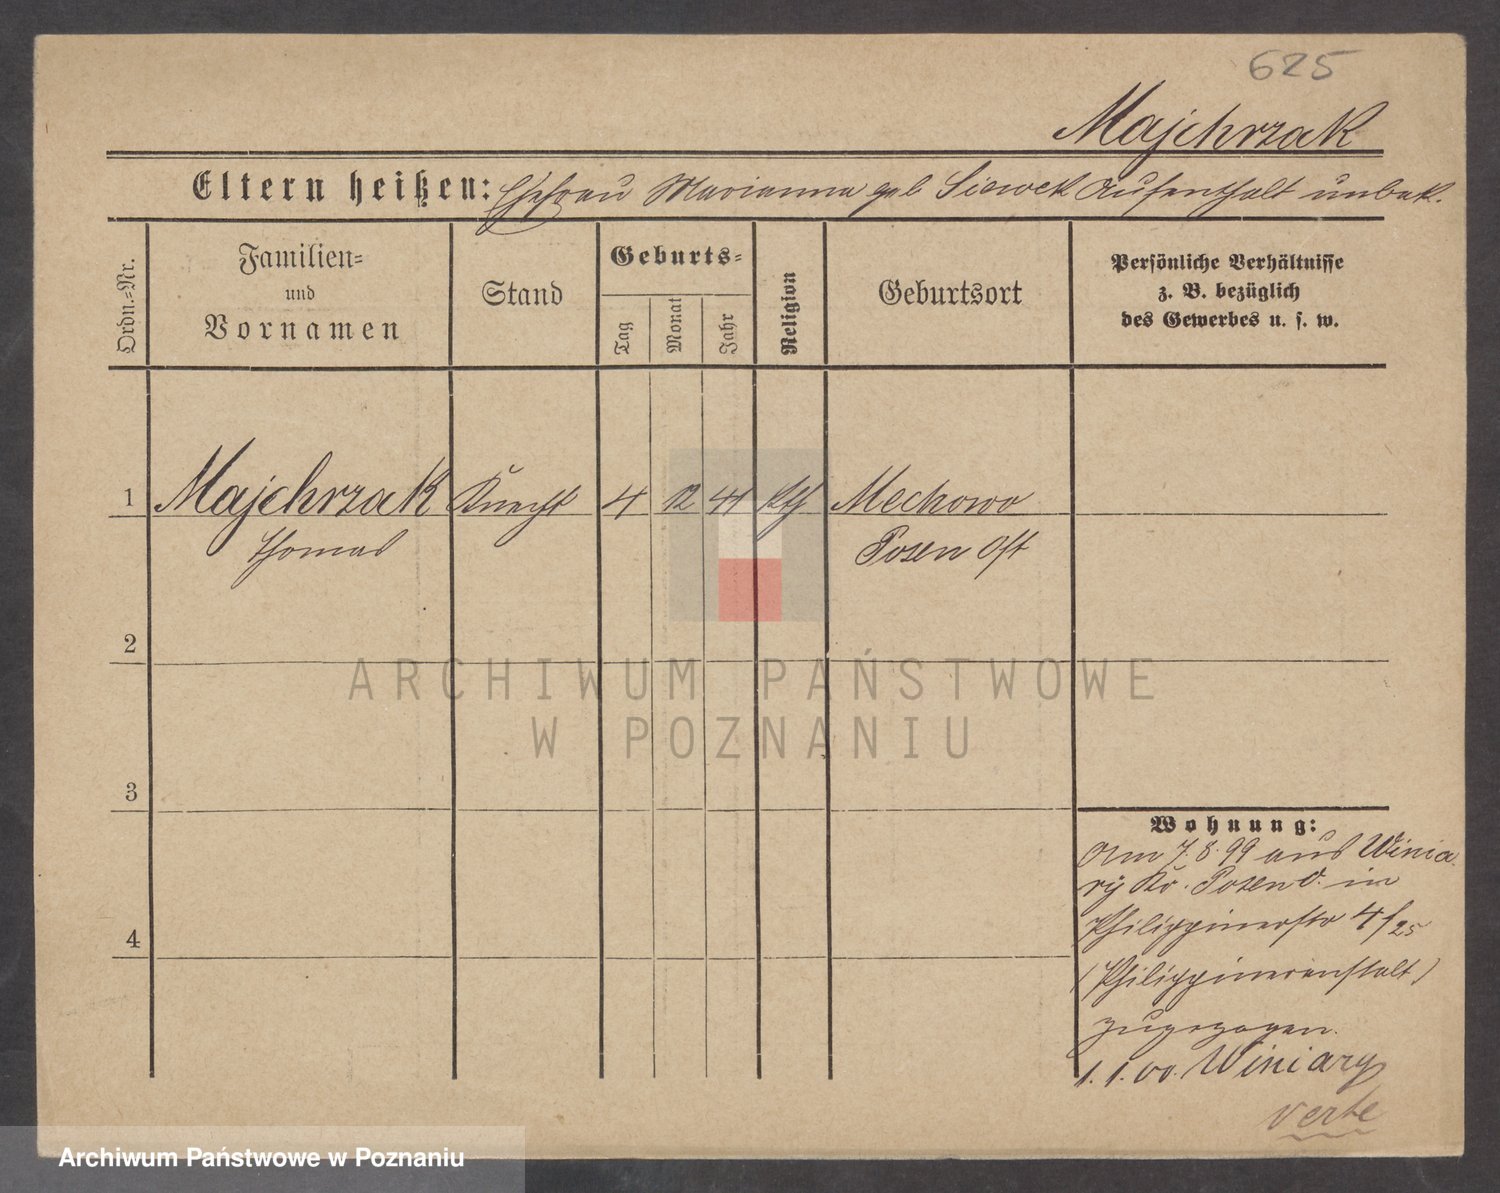 625
Majchrzak
Eltern heißen: Ehefrau Marianna geb Siewek Aufenthalt unbek.
Ordn.=Nr.
Familien=
und
Vornamen
Stand
Geburts=
Tag
Monat
Jahr
Religion
Geburtsort
Persönliche Verhältnisse
z. B. bezüglich
des Gewerbes u. s. w.
1 Majchrzak Knecht 4 12 41 kth Mechowo
Thomas Posen Ost
2
3
4
Wohnung:
Am 7.8.99 aus Winia-
ry Kr. Posen O. in
Philippinerstr 4/25
(Philippineranstalt)
zugezogen.
1.1.00. Winiary
verte
ARCHIWUM PAŃSTWOWE
W POZNANIU
Archiwum Państwowe w Poznaniu